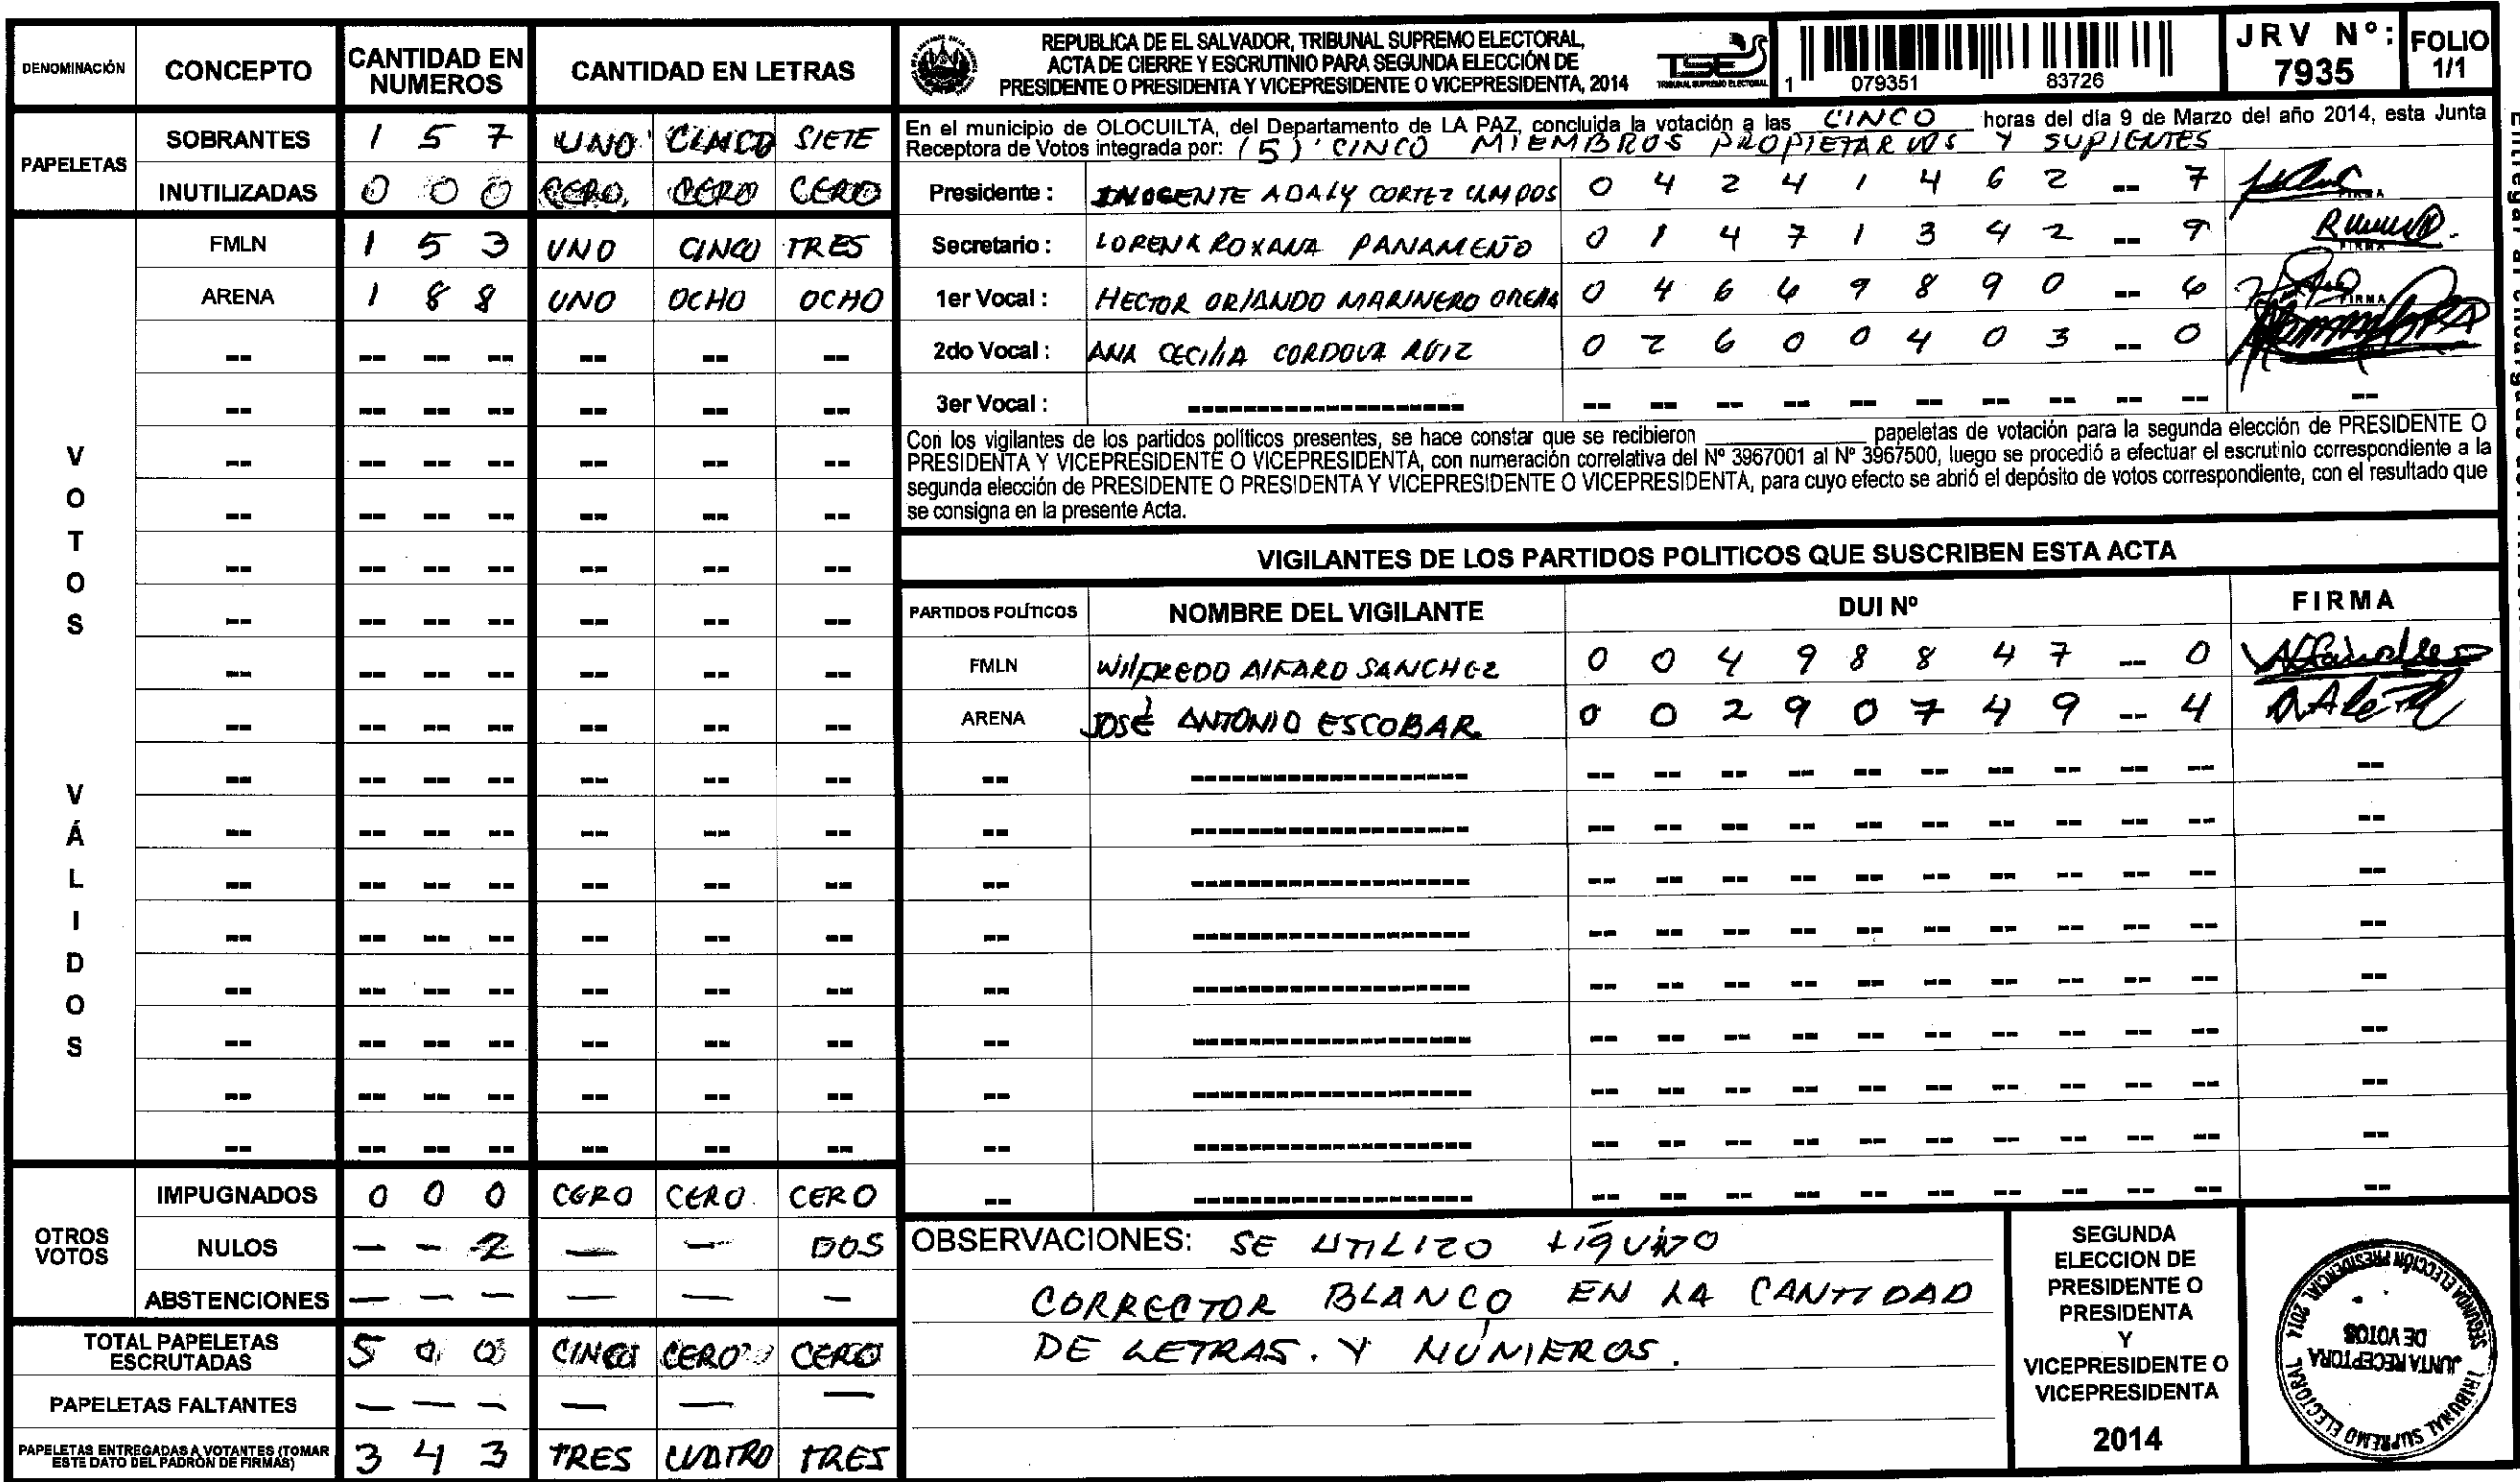 DENOMINACIÓN CONCEPTO CANTIDAD EN NUMEROS CANTIDAD EN LETRAS
PAPELETAS
SOBRANTES 1 5 7 UNO CINCO SIETE
INUTILIZADAS 0 0 0 CERO CERO CERO
VOTOS VÁLIDOS
FMLN 1 5 3 UNO CINCO TRES
ARENA 1 8 8 UNO OCHO OCHO
OTROS VOTOS
IMPUGNADOS 0 0 0 CERO CERO CERO
NULOS — — 2 — — DOS
ABSTENCIONES — — — — — —
TOTAL PAPELETAS ESCRUTADAS 5 0 0 CINCO CERO CERO
PAPELETAS FALTANTES — — — — — —
PAPELETAS ENTREGADAS A VOTANTES (TOMAR ESTE DATO DEL PADRÓN DE FIRMAS) 3 4 3 TRES CUATRO TRES
REPUBLICA DE EL SALVADOR, TRIBUNAL SUPREMO ELECTORAL,
ACTA DE CIERRE Y ESCRUTINIO PARA SEGUNDA ELECCIÓN DE
PRESIDENTE O PRESIDENTA Y VICEPRESIDENTE O VICEPRESIDENTA, 2014
TSE
TRIBUNAL SUPREMO ELECTORAL
1 079351 83726
JRV Nº: 7935
FOLIO 1/1
En el municipio de OLOCUILTA, del Departamento de LA PAZ, concluida la votación a las CINCO horas del día 9 de Marzo del año 2014, esta Junta
Receptora de Votos integrada por: (5) CINCO MIEMBROS PROPIETARIOS Y SUPLENTES
Presidente : INOCENTE ADALY CORTEZ CAMPOS 0 4 2 4 1 4 6 2 -- 7 FIRMA
Secretario : LORENA ROXANA PANAMEÑO 0 1 4 7 1 3 4 2 -- 9 FIRMA
1er Vocal : HECTOR ORLANDO MARINERO 0 4 6 6 9 8 9 0 -- 6 FIRMA
2do Vocal : ANA CECILIA CORDOVA RUIZ 0 2 6 0 0 4 0 3 -- 0
3er Vocal :
Con los vigilantes de los partidos políticos presentes, se hace constar que se recibieron ________ papeletas de votación para la segunda elección de PRESIDENTE O
PRESIDENTA Y VICEPRESIDENTE O VICEPRESIDENTA, con numeración correlativa del Nº 3967001 al Nº 3967500, luego se procedió a efectuar el escrutinio correspondiente a la
segunda elección de PRESIDENTE O PRESIDENTA Y VICEPRESIDENTE O VICEPRESIDENTA, para cuyo efecto se abrió el depósito de votos correspondiente, con el resultado que
se consigna en la presente Acta.
VIGILANTES DE LOS PARTIDOS POLITICOS QUE SUSCRIBEN ESTA ACTA
PARTIDOS POLÍTICOS NOMBRE DEL VIGILANTE DUI Nº FIRMA
FMLN WILFREDO ALFARO SANCHEZ 0 0 4 9 8 8 4 7 -- 0
ARENA JOSÉ ANTONIO ESCOBAR 0 0 2 9 0 7 4 9 -- 4
OBSERVACIONES: SE UTILIZO LIQUIDO
CORRECTOR BLANCO EN LA CANTIDAD
DE LETRAS. Y NÚMEROS.
SEGUNDA
ELECCION DE
PRESIDENTE O
PRESIDENTA
Y
VICEPRESIDENTE O
VICEPRESIDENTA
2014
SEGUNDA ELECCIÓN PRESIDENCIAL 2014
JUNTA RECEPTORA
DE VOTOS
TRIBUNAL SUPREMO ELECTORAL